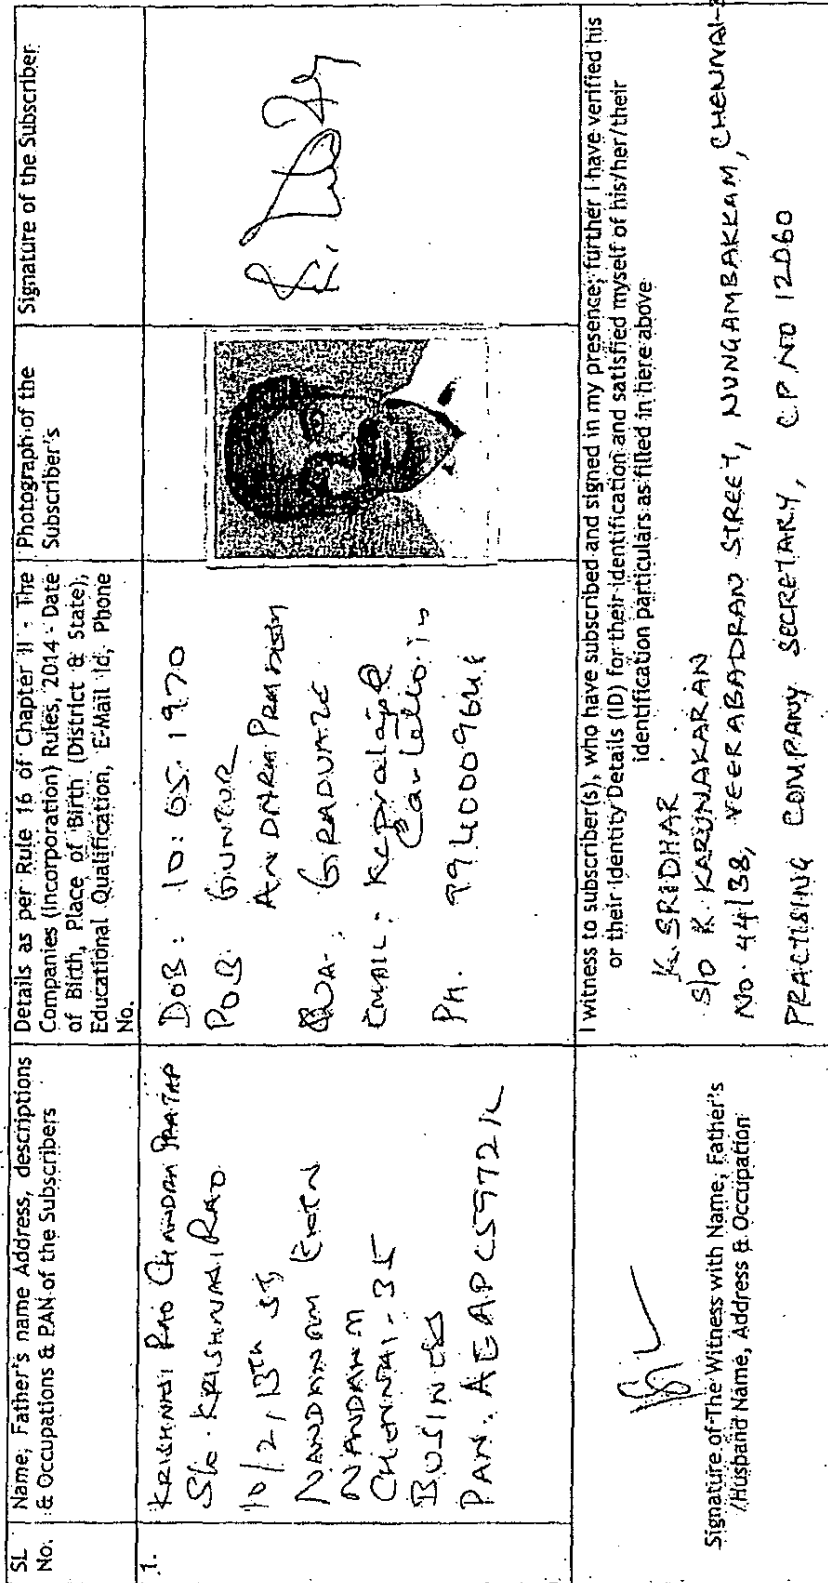 SL
No.
Name, Father's name Address, descriptions
& Occupations & PAN of the Subscribers
Details as per Rule 16 of Chapter II - The
Companies (Incorporation) Rules, 2014 - Date
of Birth, Place of Birth (District & State),
Educational Qualification, E-Mail Id, Phone
No.
Photograph of the
Subscriber's
Signature of the Subscriber
1.
KRISHNAJI RAO CHANDRA PRATAP
S/o. KRISHNAJI RAO
10/2, 13th ST
NANDANAM EXTN
NANDANAM
CHENNAI-35
BUSINESS
PAN. AEAPC5972K
DOB: 10.05.1970
POB. GUNTUR
ANDHRA PRADESH
QUA-. GRADUATE
EMAIL:
PH.
Signature of The Witness with Name, Father's
/Husband Name, Address & Occupation
I witness to subscriber(s), who have subscribed and signed in my presence; further I have verified his
or their Identity Details (ID) for their identification and satisfied myself of his/her/their
identification particulars as filled in here above
K. SRIDHAR
S/o K. KARUNAKARAN
No. 44/38, VEERABADRAN STREET, NUNGAMBAKKAM, CHENNAI-
PRACTISING COMPANY SECRETARY, C.P. NO 12060